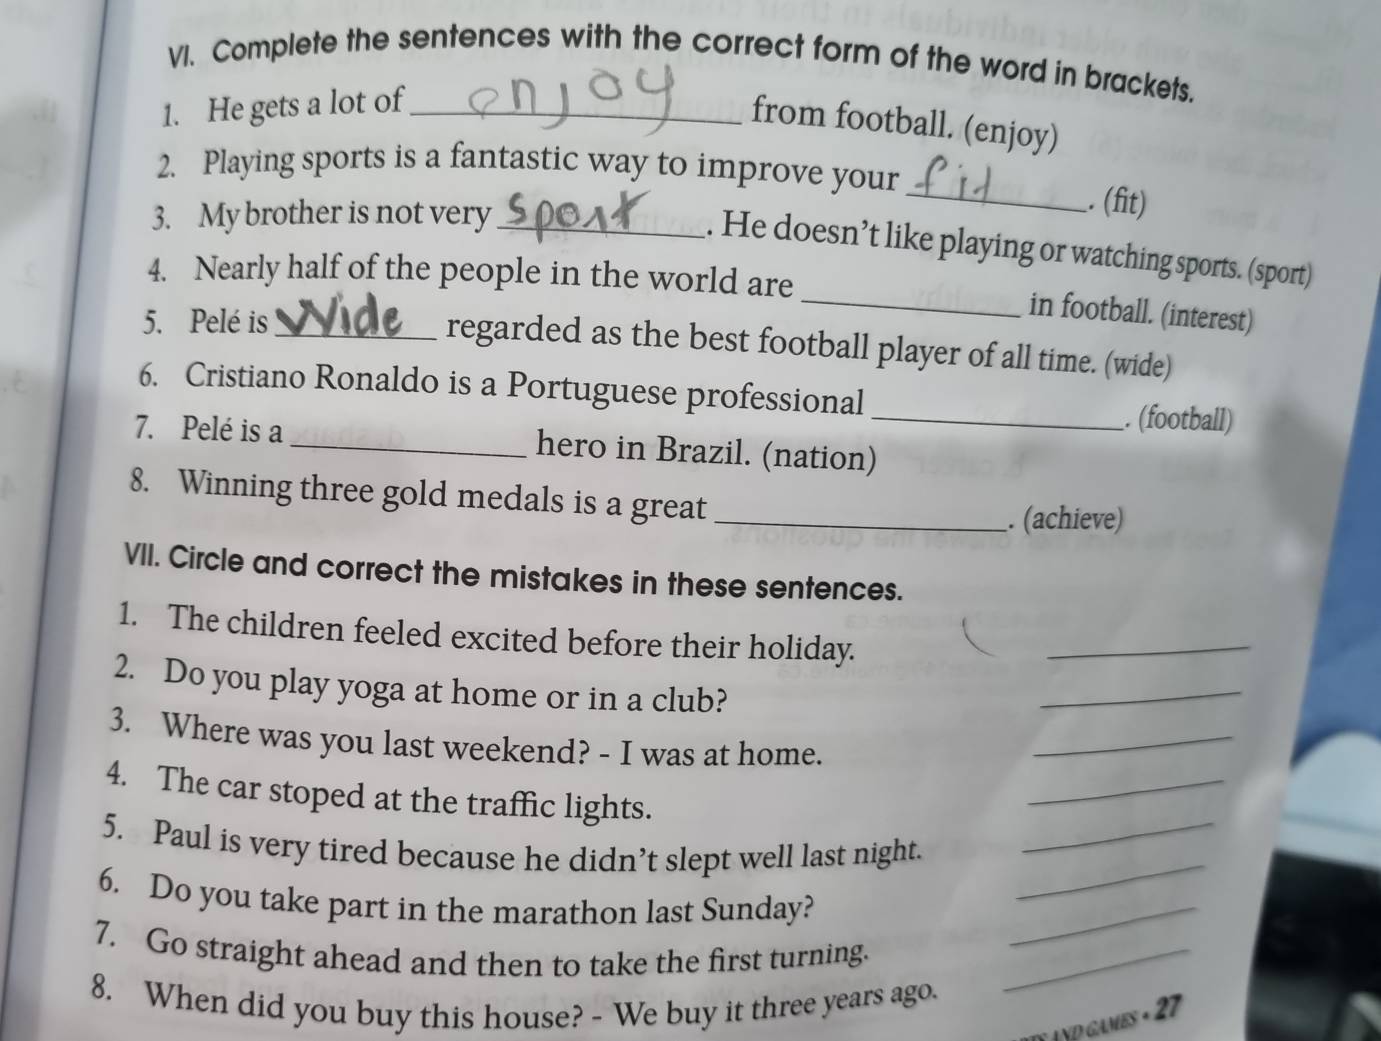 VI. Complete the sentences with the correct form of the word in brackets.
1. He gets a lot of enjoy from football. (enjoy)
2. Playing sports is a fantastic way to improve your fit. (fit)
3. My brother is not very sport. He doesn't like playing or watching sports. (sport)
4. Nearly half of the people in the world are ____________ in football. (interest)
5. Pelé is Wide regarded as the best football player of all time. (wide)
6. Cristiano Ronaldo is a Portuguese professional ____________. (football)
7. Pelé is a ____________ hero in Brazil. (nation)
8. Winning three gold medals is a great ____________. (achieve)
VII. Circle and correct the mistakes in these sentences.
1. The children feeled excited before their holiday. ____________
2. Do you play yoga at home or in a club? ____________
3. Where was you last weekend? - I was at home. ____________
4. The car stoped at the traffic lights. ____________
5. Paul is very tired because he didn't slept well last night. ____________
6. Do you take part in the marathon last Sunday? ____________
7. Go straight ahead and then to take the first turning. ____________
8. When did you buy this house? - We buy it three years ago. ____________
AND GAMES • 27